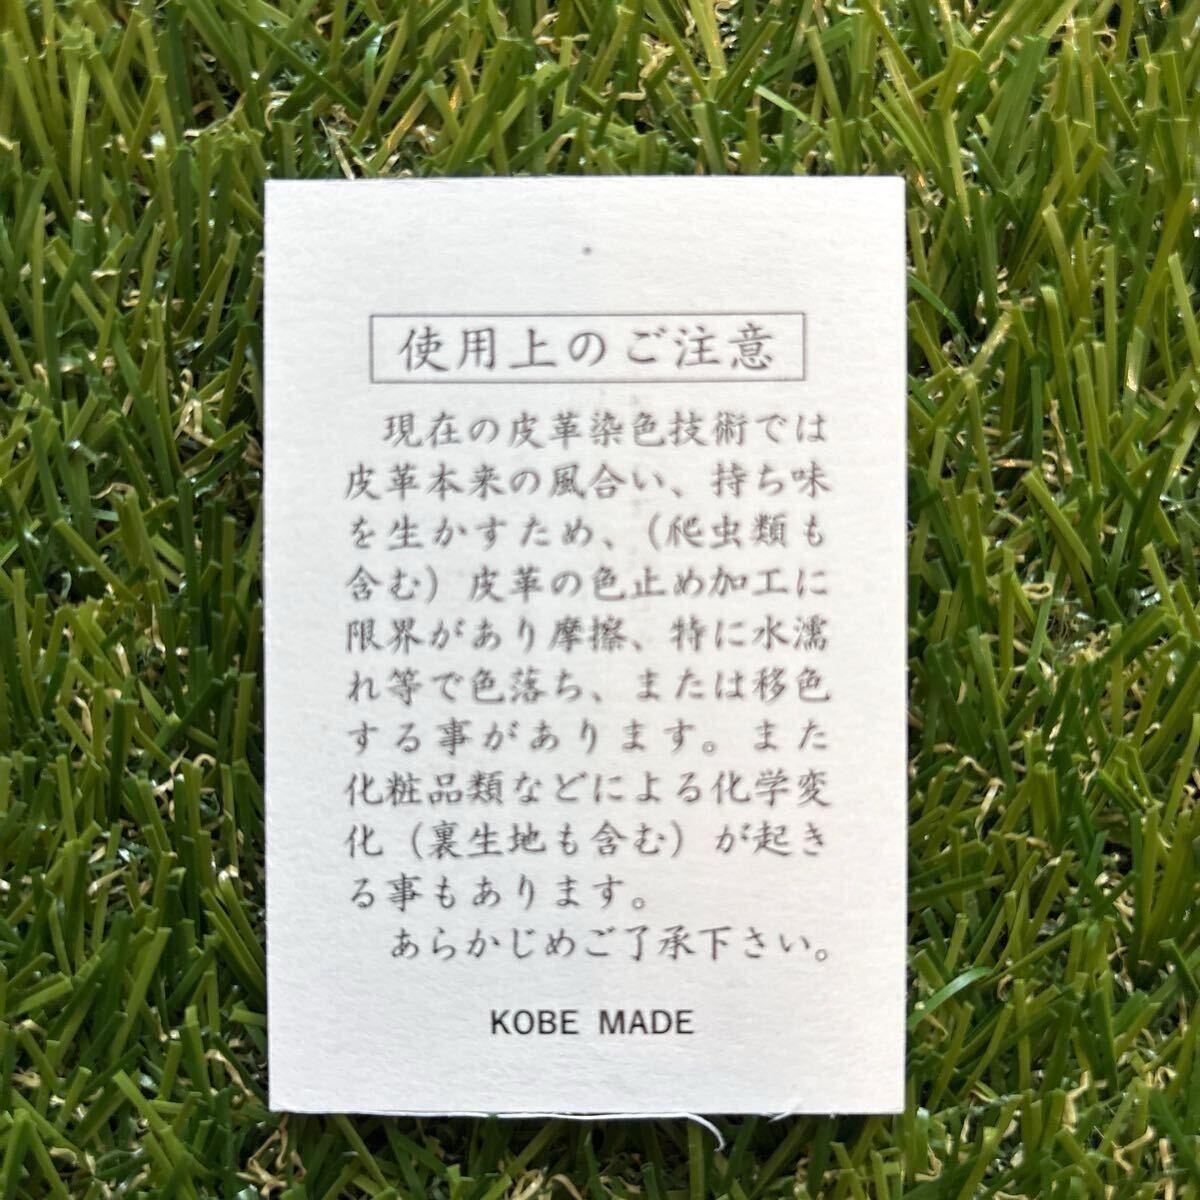 使用上のご注意
現在の皮革染色技術では
皮革本来の風合い、持ち味
を生かすため、（爬虫類も
含む）皮革の色止め加工に
限界があり摩擦、特に水濡
れ等で色落ち、または移色
する事があります。また
化粧品類などによる化学変
化（裏生地も含む）が起き
る事もあります。
あらかじめご了承下さい。
KOBE MADE